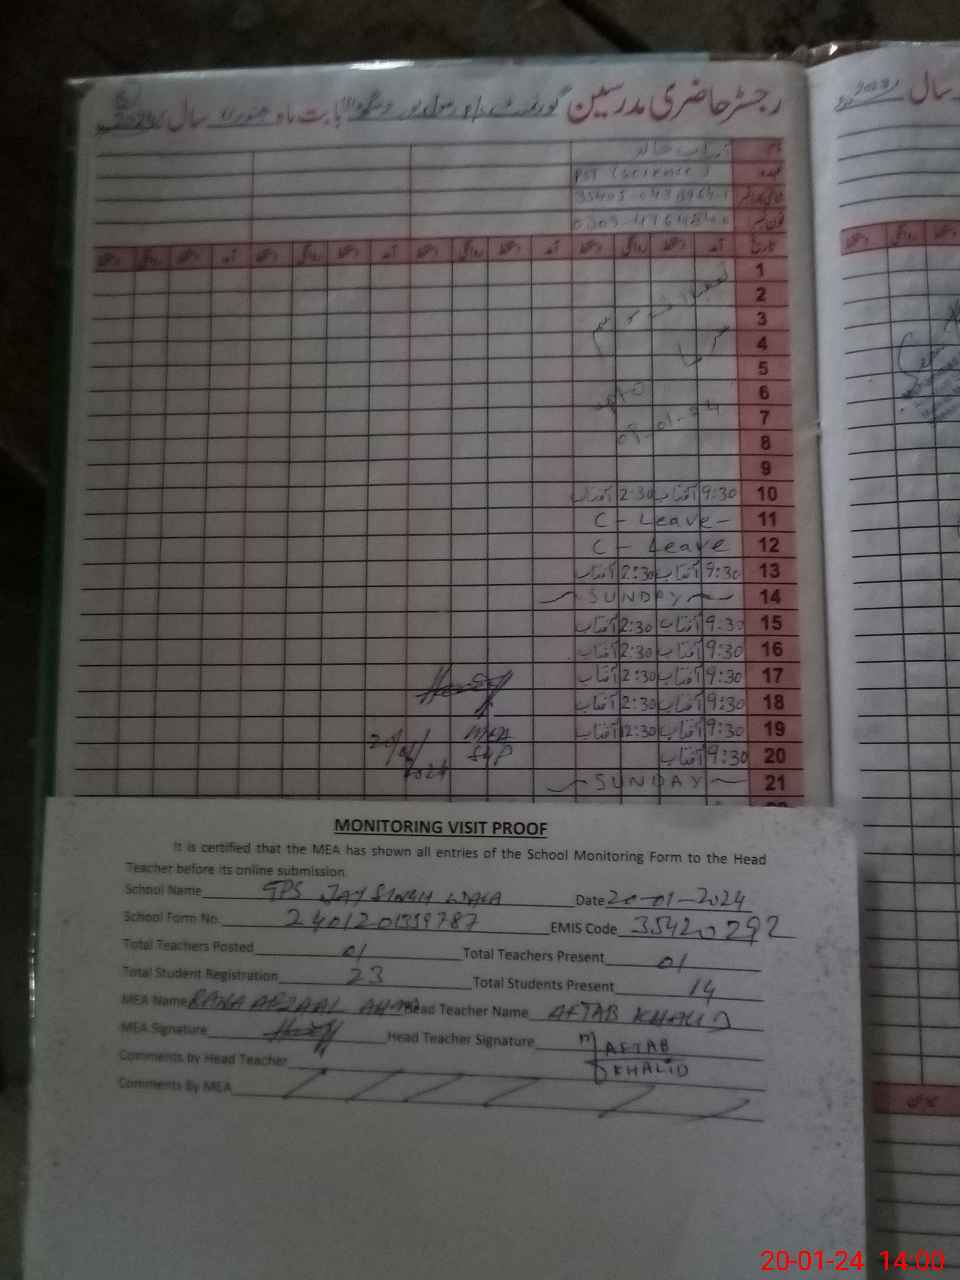 رجسٹر حاضری مدرسین گورنمنٹ بابت ماہ جنوری سال
سال
نام آفتاب خالد
عہدہ PST (Science)
تاریخ آمد دستخط روانگی دستخط آمد دستخط روانگی دستخط آمد دستخط روانگی دستخط آمد دستخط روانگی دستخط
1
2
3
4
5
6
7
8
08-01-24
9
10 9:30 آفتاب 2:30 آفتاب
11 C - Leave -
12 C - Leave
13 9:30 آفتاب 2:30 آفتاب
14 SUNDAY
15 9:30 آفتاب 2:30 آفتاب
16 9:30 آفتاب 2:30 آفتاب
17 9:30 آفتاب 2:30 آفتاب
18 9:30 آفتاب 2:30 آفتاب
19 9:30 آفتاب 12:30 آفتاب
20 9:30 آفتاب
21 SUNDAY
MEA
20/01/2024
MONITORING VISIT PROOF
It is certified that the MEA has shown all entries of the School Monitoring Form to the Head
Teacher before its online submission.
School Name GPS JAY SINGH WALA Date 20-01-2024
School Form No. 2401201359787 EMIS Code 35420292
Total Teachers Posted 01 Total Teachers Present 01
Total Student Registration 23 Total Students Present 14
MEA Name RANA AFZAAL AHMAD Head Teacher Name AFTAB KHALID
MEA Signature Head Teacher Signature AFTAB
KHALID
Comments by Head Teacher
Comments By MEA
20-01-24 14:00